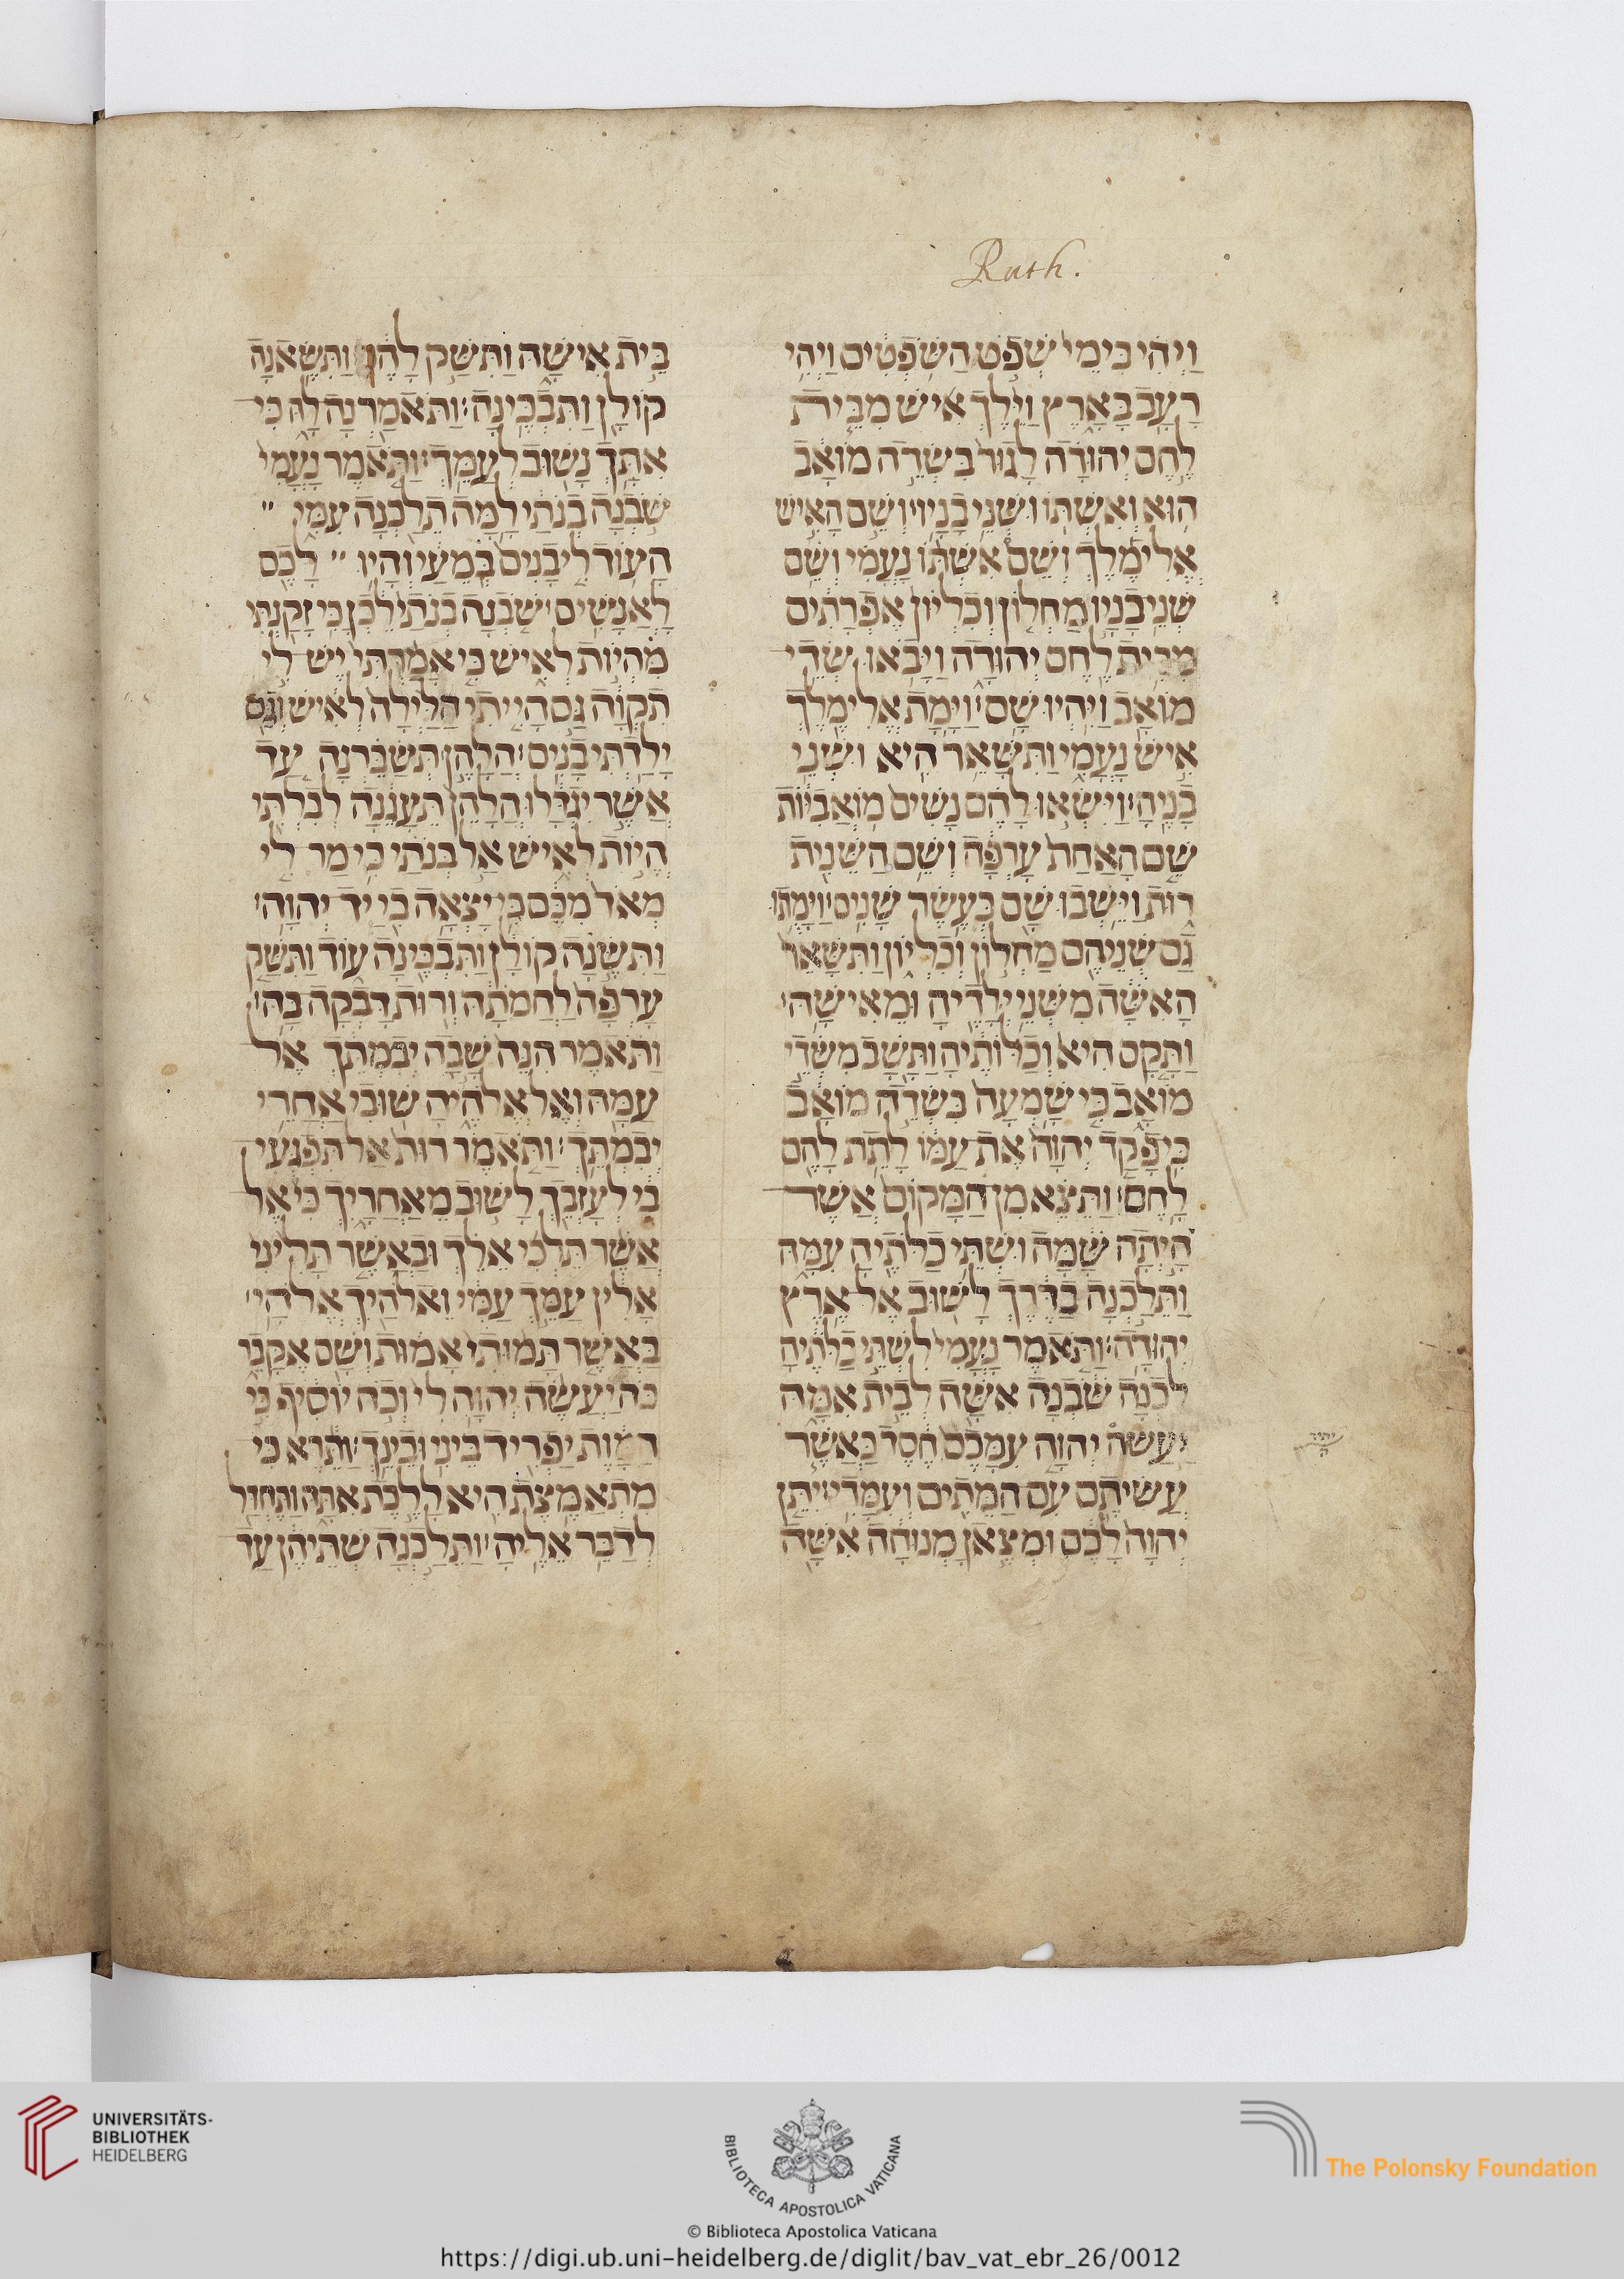 Ruth.
וַיְהִי בִּימֵי שְׁפֹט הַשֹּׁפְטִים וַיְהִי
רָעָב בָּאָרֶץ וַיֵּלֶךְ אִישׁ מִבֵּית
לֶחֶם יְהוּדָה לָגוּר בִּשְׂדֵה מוֹאָב
הוּא וְאִשְׁתּוֹ וּשְׁנֵי בָנָיו׃ וְשֵׁם הָאִישׁ
אֱלִימֶלֶךְ וְשֵׁם אִשְׁתּוֹ נָעֳמִי וְשֵׁם
שְׁנֵי בָנָיו מַחְלוֹן וְכִלְיוֹן אֶפְרָתִים
מִבֵּית לֶחֶם יְהוּדָה וַיָּבֹאוּ שְׂדֵי
מוֹאָב וַיִּהְיוּ שָׁם׃ וַיָּמָת אֱלִימֶלֶךְ
אִישׁ נָעֳמִי וַתִּשָּׁאֵר הִיא וּשְׁנֵי
בָנֶיהָ׃ וַיִּשְׂאוּ לָהֶם נָשִׁים מוֹאֲבִיּוֹת
שֵׁם הָאַחַת עָרְפָּה וְשֵׁם הַשֵּׁנִית
רוּת וַיֵּשְׁבוּ שָׁם כְּעֶשֶׂר שָׁנִים׃ וַיָּמֻתוּ
גַם שְׁנֵיהֶם מַחְלוֹן וְכִלְיוֹן וַתִּשָּׁאֵר
הָאִשָּׁה מִשְּׁנֵי יְלָדֶיהָ וּמֵאִישָׁהּ׃
וַתָּקָם הִיא וְכַלּוֹתֶיהָ וַתָּשָׁב מִשְּׂדֵי
מוֹאָב כִּי שָׁמְעָה בִּשְׂדֵה מוֹאָב
כִּי פָקַד יְהוָה אֶת עַמּוֹ לָתֵת לָהֶם
לָחֶם׃ וַתֵּצֵא מִן הַמָּקוֹם אֲשֶׁר
הָיְתָה שָׁמָּה וּשְׁתֵּי כַלֹּתֶיהָ עִמָּהּ
וַתֵּלַכְנָה בַדֶּרֶךְ לָשׁוּב אֶל אֶרֶץ
יְהוּדָה׃ וַתֹּאמֶר נָעֳמִי לִשְׁתֵּי כַלֹּתֶיהָ
לֵכְנָה שֹּׁבְנָה אִשָּׁה לְבֵית אִמָּהּ
יַעֲשֶׂה יְהוָה עִמָּכֶם חֶסֶד כַּאֲשֶׁר
עֲשִׂיתֶם עִם הַמֵּתִים וְעִמָּדִי׃ יִתֵּן
יְהוָה לָכֶם וּמְצֶאןָ מְנוּחָה אִשָּׁה
בֵּית אִישָׁהּ וַתִּשַּׁק לָהֶן וַתִּשֶּׂאנָה
קוֹלָן וַתִּבְכֶּינָה׃ וַתֹּאמַרְנָה לָּהּ כִּי
אִתָּךְ נָשׁוּב לְעַמֵּךְ׃ וַתֹּאמֶר נָעֳמִי
שֹׁבְנָה בְנֹתַי לָמָּה תֵלַכְנָה עִמִּי
הַעוֹד לִי בָנִים בְּמֵעַי וְהָיוּ לָכֶם
לַאֲנָשִׁים׃ שֹׁבְנָה בְנֹתַי לֵכְןָ כִּי זָקַנְתִּי
מִהְיוֹת לְאִישׁ כִּי אָמַרְתִּי יֶשׁ לִי
תִקְוָה גַּם הָיִיתִי הַלַּיְלָה לְאִישׁ וְגַם
יָלַדְתִּי בָנִים׃ הֲלָהֵן תְּשַׂבֵּרְנָה עַד
אֲשֶׁר יִגְדָּלוּ הֲלָהֵן תֵּעָגֵנָה לְבִלְתִּי
הֱיוֹת לְאִישׁ אַל בְּנֹתַי כִּי מַר לִי
מְאֹד מִכֶּם כִּי יָצְאָה בִי יַד יְהוָה׃
וַתִּשֶּׂנָה קוֹלָן וַתִּבְכֶּינָה עוֹד וַתִּשַּׁק
עָרְפָּה לַחֲמוֹתָהּ וְרוּת דָּבְקָה בָּהּ׃
וַתֹּאמֶר הִנֵּה שָׁבָה יְבִמְתֵּךְ אֶל
עַמָּהּ וְאֶל אֱלֹהֶיהָ שׁוּבִי אַחֲרֵי
יְבִמְתֵּךְ׃ וַתֹּאמֶר רוּת אַל תִּפְגְּעִי
בִי לְעָזְבֵךְ לָשׁוּב מֵאַחֲרָיִךְ כִּי אֶל
אֲשֶׁר תֵּלְכִי אֵלֵךְ וּבַאֲשֶׁר תָּלִינִי
אָלִין עַמֵּךְ עַמִּי וֵאלֹהַיִךְ אֱלֹהָי׃
בַּאֲשֶׁר תָּמוּתִי אָמוּת וְשָׁם אֶקָּבֵר
כֹּה יַעֲשֶׂה יְהוָה לִי וְכֹה יוֹסִיף כִּי
הַמָּוֶת יַפְרִיד בֵּינִי וּבֵינֵךְ׃ וַתֵּרֶא כִּי
מִתְאַמֶּצֶת הִיא לָלֶכֶת אִתָּהּ וַתֶּחְדַּל
לְדַבֵּר אֵלֶיהָ׃ וַתֵּלַכְנָה שְׁתֵּיהֶן עַד
UNIVERSITÄTS-
BIBLIOTHEK
HEIDELBERG
BIBLIOTECA APOSTOLICA VATICANA
The Polonsky Foundation
© Biblioteca Apostolica Vaticana
https://digi.ub.uni-heidelberg.de/diglit/bav_vat_ebr_26/0012